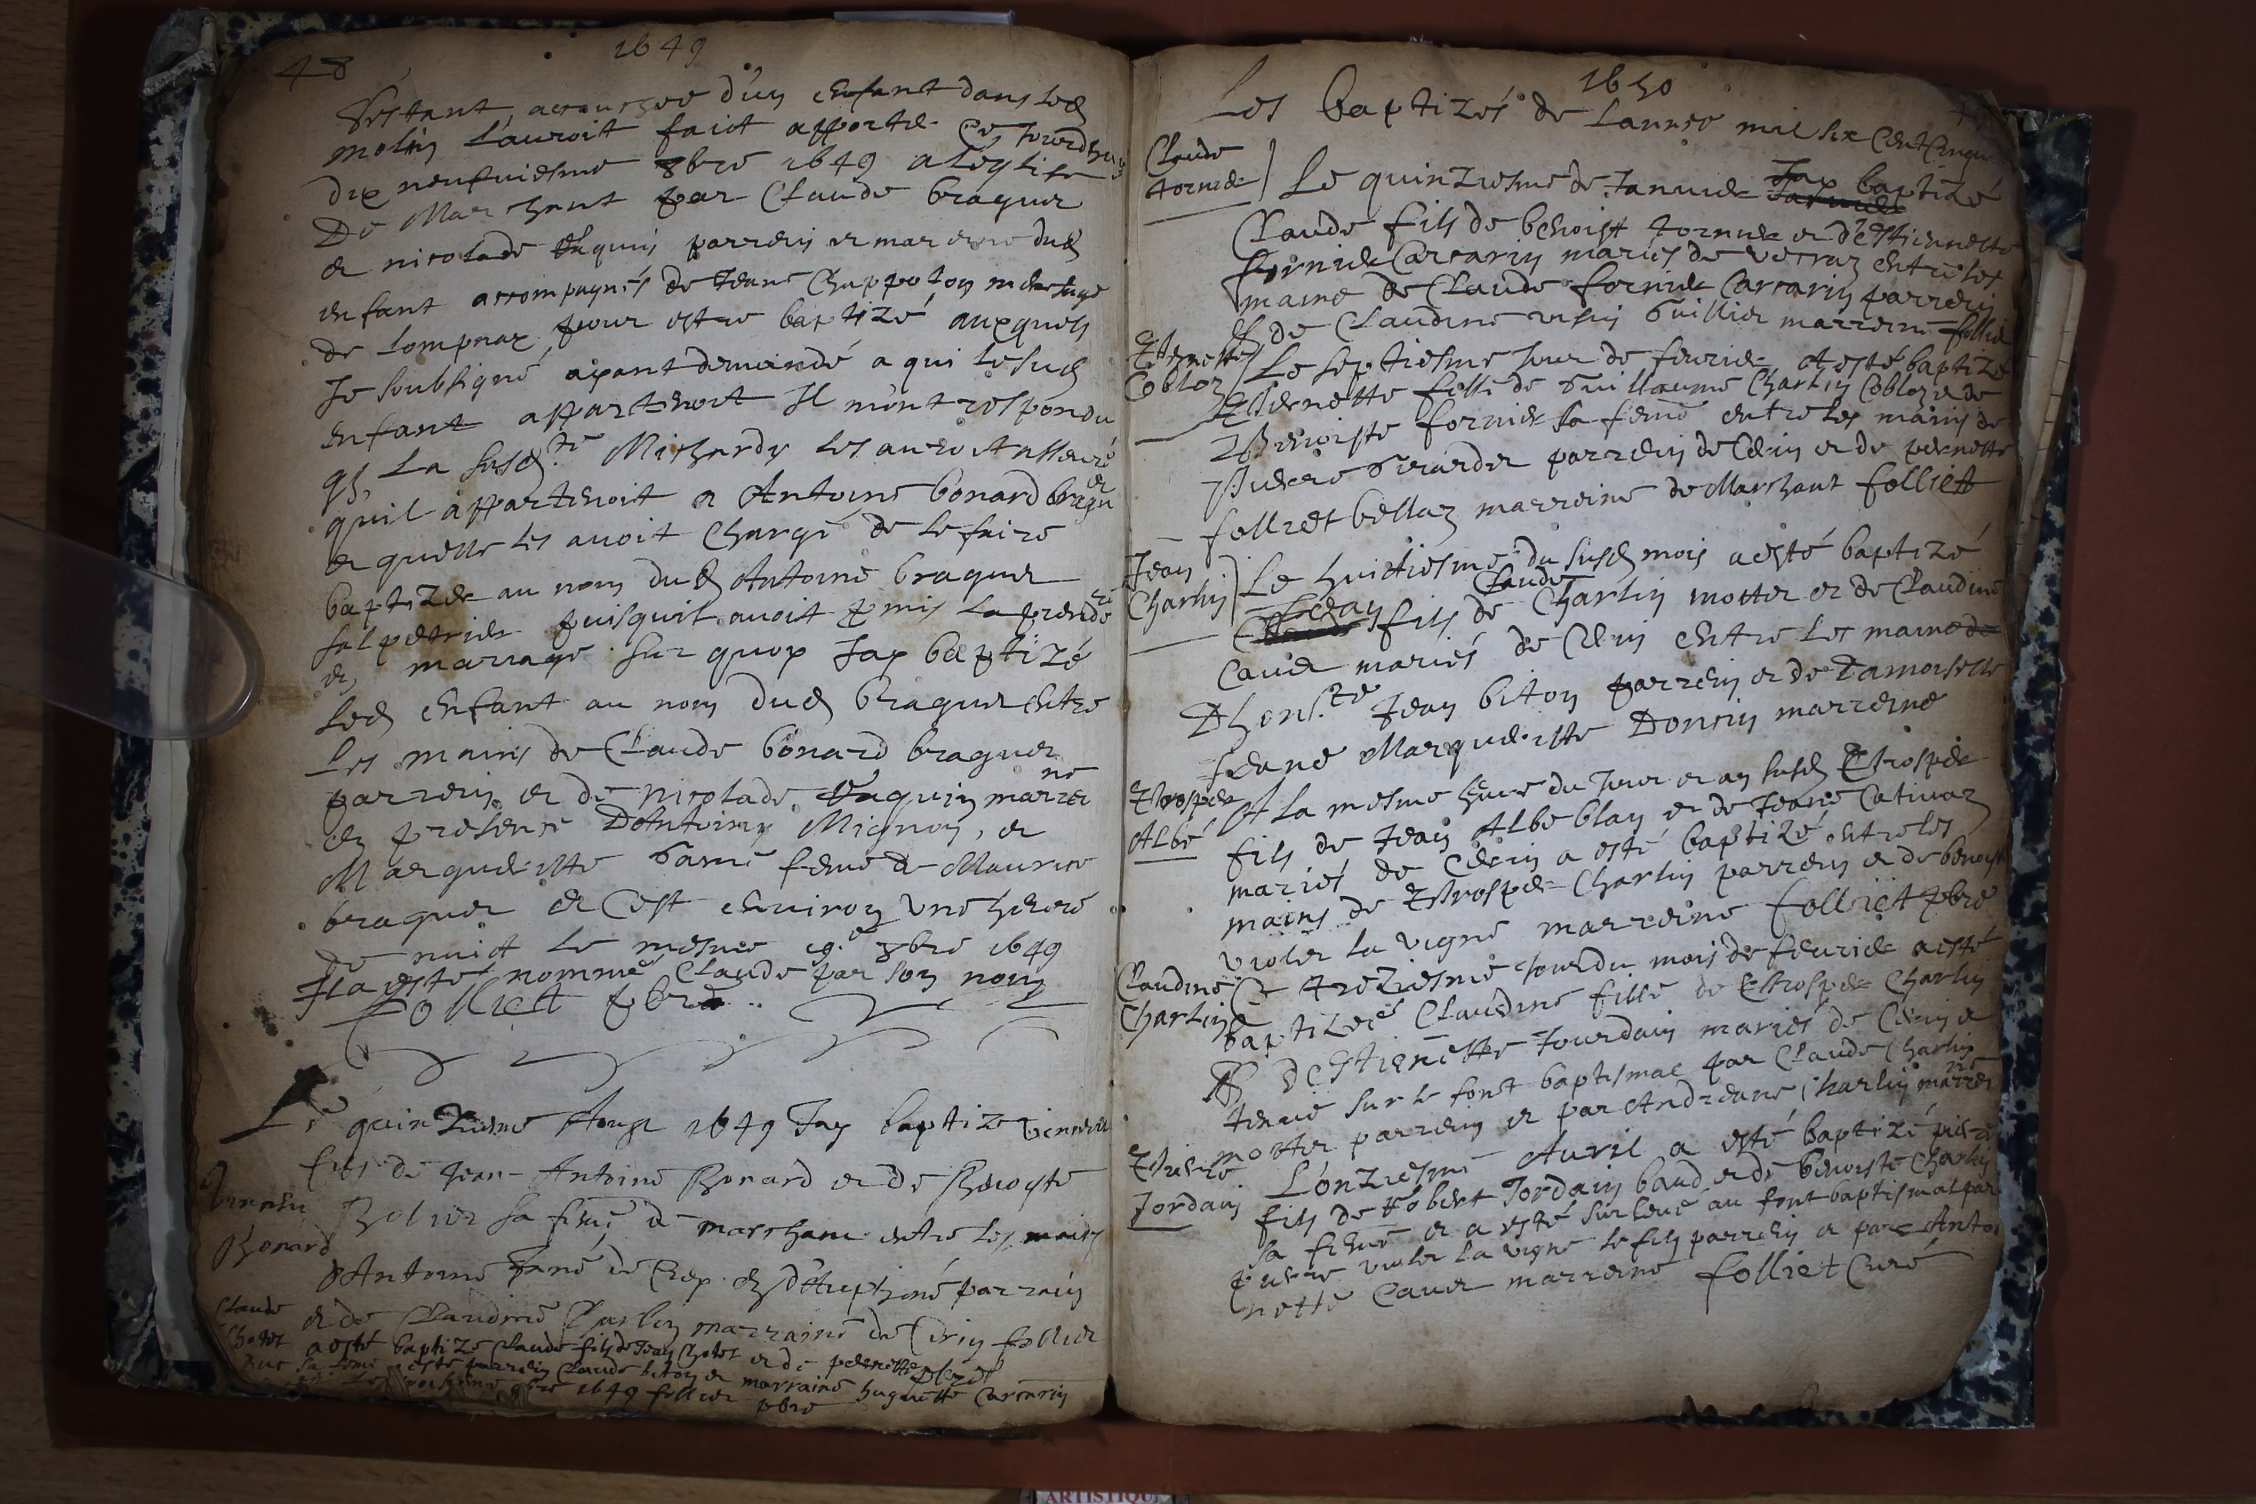 48
1649
s'estant accouchée d'un enfant dans led
molin l'auroit faict apporter ce jourdhuy
dix neufuiesme 8bre 1649 a leglise
De Marchant par Claude braguer
et nicolade parrein et marreine dud
enfant accompagnés de Jeane Chappoton mere sage
de Lompnaz pour estre baptizé auxquels
Je soubsigné ayant demandé a qui lesud
enfant appartenoit Il m'ont respondu
q; la susd. Michardz les auroit asseuré
quil appartenoit a Antoine bonard braguer
et quelle les avoit Chargé de le faire
baptizer au nom dud Antoine braguer
salpetrier puisquil avoit pmis la prendre
en mariage sur quoy Jay baptizé
led enfant au nom dud braguer entre
Les mains de Claude bonard braguer
parrein et de nicolade marreine
en presence D'Antoine Mignon, et
Margueritte Game feme de Maurice
braguer et C'est environ une heure
De nuict le mesme 19.e 8bre 1649
Il a esté nommé Claude par son nom
Folliet pbre
Le quinziesme Aougt 1649 Jay baptize
fils de Jean-Antoine Bonard et de Benoyte
Bonard
sa feme de marchant entre les mains
d'Antoine Jané de Crep en d'Auphiné parrain
et de Claudine Charlin marraine de Cerin folliet
Claude
Chotet
a esté baptizé Claude fils de Jean Chotet et de pernette
sa feme a esté parrein Claude biton et marraine huguette Carcarin
9bre 1649 folliet pbre
1650
Les baptizés de Lannée mil six Cent Cinqua
Claude
fornier
Le quinziesme de Janvier Jay baptizé
Claude fils de benoist fornier et d'estiennette
fornier Carcarin mariés de vecraz entre les
mains de Claude fornier Carcarin parrein
et de Claudine Guillier marreine folliet
Pernette
Cobloz
Le septiesme Jour de feurier a esté baptizé
Pernette fille de Guillaume Charlin Cobloz et de
Benoiste fornier sa feme entre les mains de
Pierre Girarder parrein de Cerin et de pernette
folliet bellaz marreine de Marchant folliet
Jean
Charlin
Le huictiesme du susd mois a esté baptizé
Jean fils de Claude Charlin motter et de Claudine
Cauer mariés de Cerin entre les mains de
D'honste Jean biton parrein et de Damoiselle
Jeane Margueritte Doncin marreine
Prosper
Albé
A la mesme heure du Jour et an susd Prosper
fils de Jean Albe blan et de Jeane Cativaz
mariés de Cerin a esté baptizé entre les
mains de Prosper Charlin parrein et de benoyste
violer la vigne marreine folliet pbre
Claudine
Charlin
Ce treziesme Jour du mois de feurier a esté
baptizée Claudine fille de Prosper Charlin
& D'estienette Jourdain mariés de Cerin et
tenue sur le font baptismal par Claude Charlin
motter parrein et par Andreane Charlin marreine
Pierre
Jordain
L'onziesme Avril a esté baptizé pierre
fils de Robert Jordain baud et de benoiste Charlin
sa feme et a esté sur levé au font baptismal par
pierre violer la vigne le fils parrein et par Antoi
nette Cauer marreine folliet Curé
ARTISTIQUE